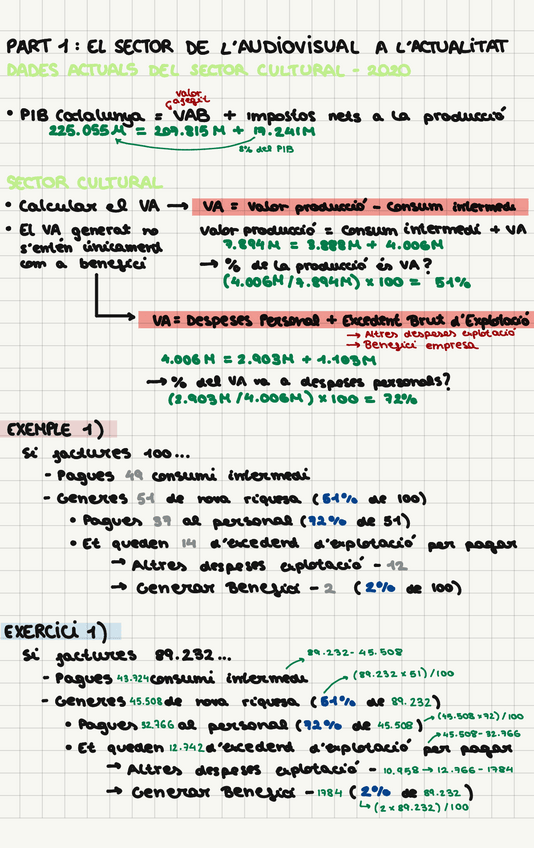 PART 1: EL SECTOR DE L'AUDIOVISUAL A L'ACTUALITAT
DADES ACTUALS DEL SECTOR CULTURAL - 2020
valor
afegit
• PIB Catalunya = VAB + impostos nets a la producció
225.055M = 207.815M + 17.241M
8% del PIB
SECTOR CULTURAL
• Calcular el VA → VA = Valor producció - Consum intermedi
• El VA generat no
s'entén únicament
com a benefici
valor producció = consum intermedi + VA
7.894M = 3.888M + 4.006M
→ % de la producció és VA?
(4.006M/7.894M) x 100 = 51%
VA = Despeses Personal + Excedent Brut d'Explotació
→ Altres despeses explotació
→ Benefici empresa
4.006M = 2.903M + 1.103M
→ % del VA va a despeses personals?
(2.903M/4.006M) x 100 = 72%
EXEMPLE 1)
Si factures 100...
- Pagues 49 consumi intermedi
- Generes 51 de nova riquesa (51% de 100)
• Pagues 37 al personal (72% de 51)
• Et queden 14 d'excedent d'explotació per pagar
→ Altres despeses explotació - 12
→ Generar Benefici - 2 (2% de 100)
EXERCICI 1)
Si factures 89.232...
89.232 - 45.508
- Pagues 43.724 consumi intermedi
(89.232 x 51) /100
- Generes 45.508 de nova riquesa (51% de 89.232)
• Pagues 32.766 al personal (72% de 45.508) → (45.508 x 72) /100
45.508 - 32.766
• Et queden 12.742 d'excedent d'explotació per pagar
→ Altres despeses explotació - 10.958 → 12.766 - 1784
→ Generar Benefici - 1784 (2% de 89.232)
(2 x 89.232) /100